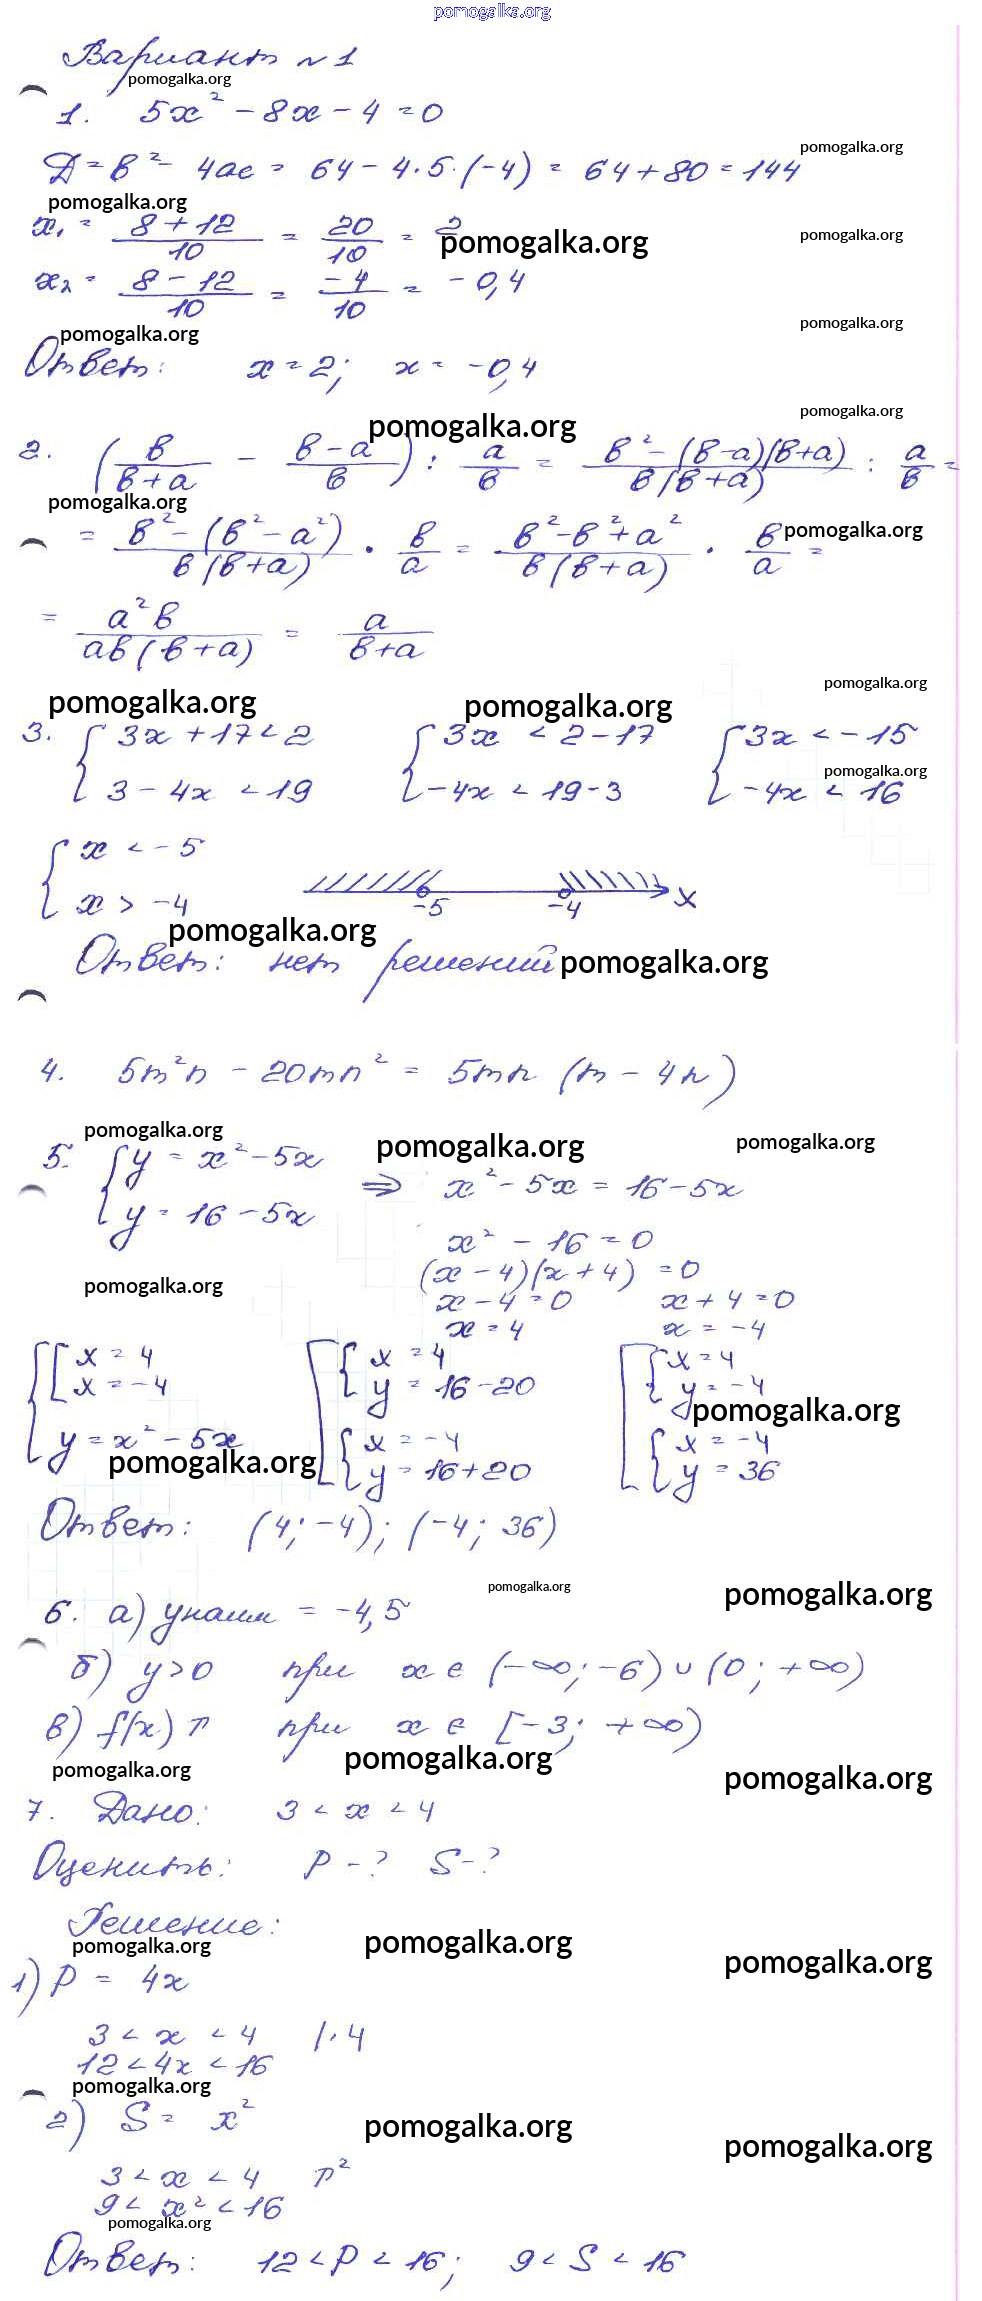 pomogalka.org
Вариант №1
pomogalka.org
1. 5x² - 8x - 4 = 0
pomogalka.org
Д = в² - 4ас = 64 - 4·5·(-4) = 64 + 80 = 144
pomogalka.org
x₁ = (8 + 12)/10 = 20/10 = 2
pomogalka.org pomogalka.org
x₂ = (8 - 12)/10 = -4/10 = -0,4
pomogalka.org pomogalka.org
Ответ: x = 2; x = -0,4
pomogalka.org pomogalka.org
2. (в/(в+а) - (в-а)/в) : а/в = (в² - (в-а)(в+а))/(в(в+а)) : а/в =
pomogalka.org
= (в² - (в² - а²))/(в(в+а)) · в/а = (в² - в² + а²)/(в(в+а)) · в/а =
pomogalka.org
= а²в/(ав(в+а)) = а/(в+а)
pomogalka.org pomogalka.org pomogalka.org
3. { 3x + 17 < 2 { 3x < 2 - 17 { 3x < -15
pomogalka.org
3 - 4x < 19 -4x < 19 - 3 -4x < 16
{ x < -5
x > -4 -5 -4 x
pomogalka.org
Ответ: нет решений
pomogalka.org
4. 5m²n - 20mn² = 5mn (m - 4n)
pomogalka.org pomogalka.org pomogalka.org
5. { y = x² - 5x ⇒ x² - 5x = 16 - 5x
y = 16 - 5x
x² - 16 = 0
(x - 4)(x + 4) = 0
pomogalka.org
x - 4 = 0 x + 4 = 0
x = 4 x = -4
{ [ x = 4 [ { x = 4 [ { x = 4
x = -4 y = 16 - 20 y = -4
pomogalka.org
y = x² - 5x { x = -4 { x = -4
pomogalka.org
y = 16 + 20 y = 36
Ответ: (4; -4); (-4; 36)
pomogalka.org pomogalka.org
6. а) yнаим = -4,5
б) y > 0 при x ∈ (-∞; -6) ∪ (0; +∞)
в) f(x) ↗ при x ∈ [-3; +∞)
pomogalka.org pomogalka.org pomogalka.org
7. Дано: 3 < x < 4
Оценить: P - ? S - ?
Решение:
pomogalka.org pomogalka.org pomogalka.org
1) P = 4x
3 < x < 4 | · 4
12 < 4x < 16
pomogalka.org
2) S = x²
pomogalka.org pomogalka.org
3 < x < 4 n²
9 < x² < 16
pomogalka.org
Ответ: 12 < P < 16; 9 < S < 16